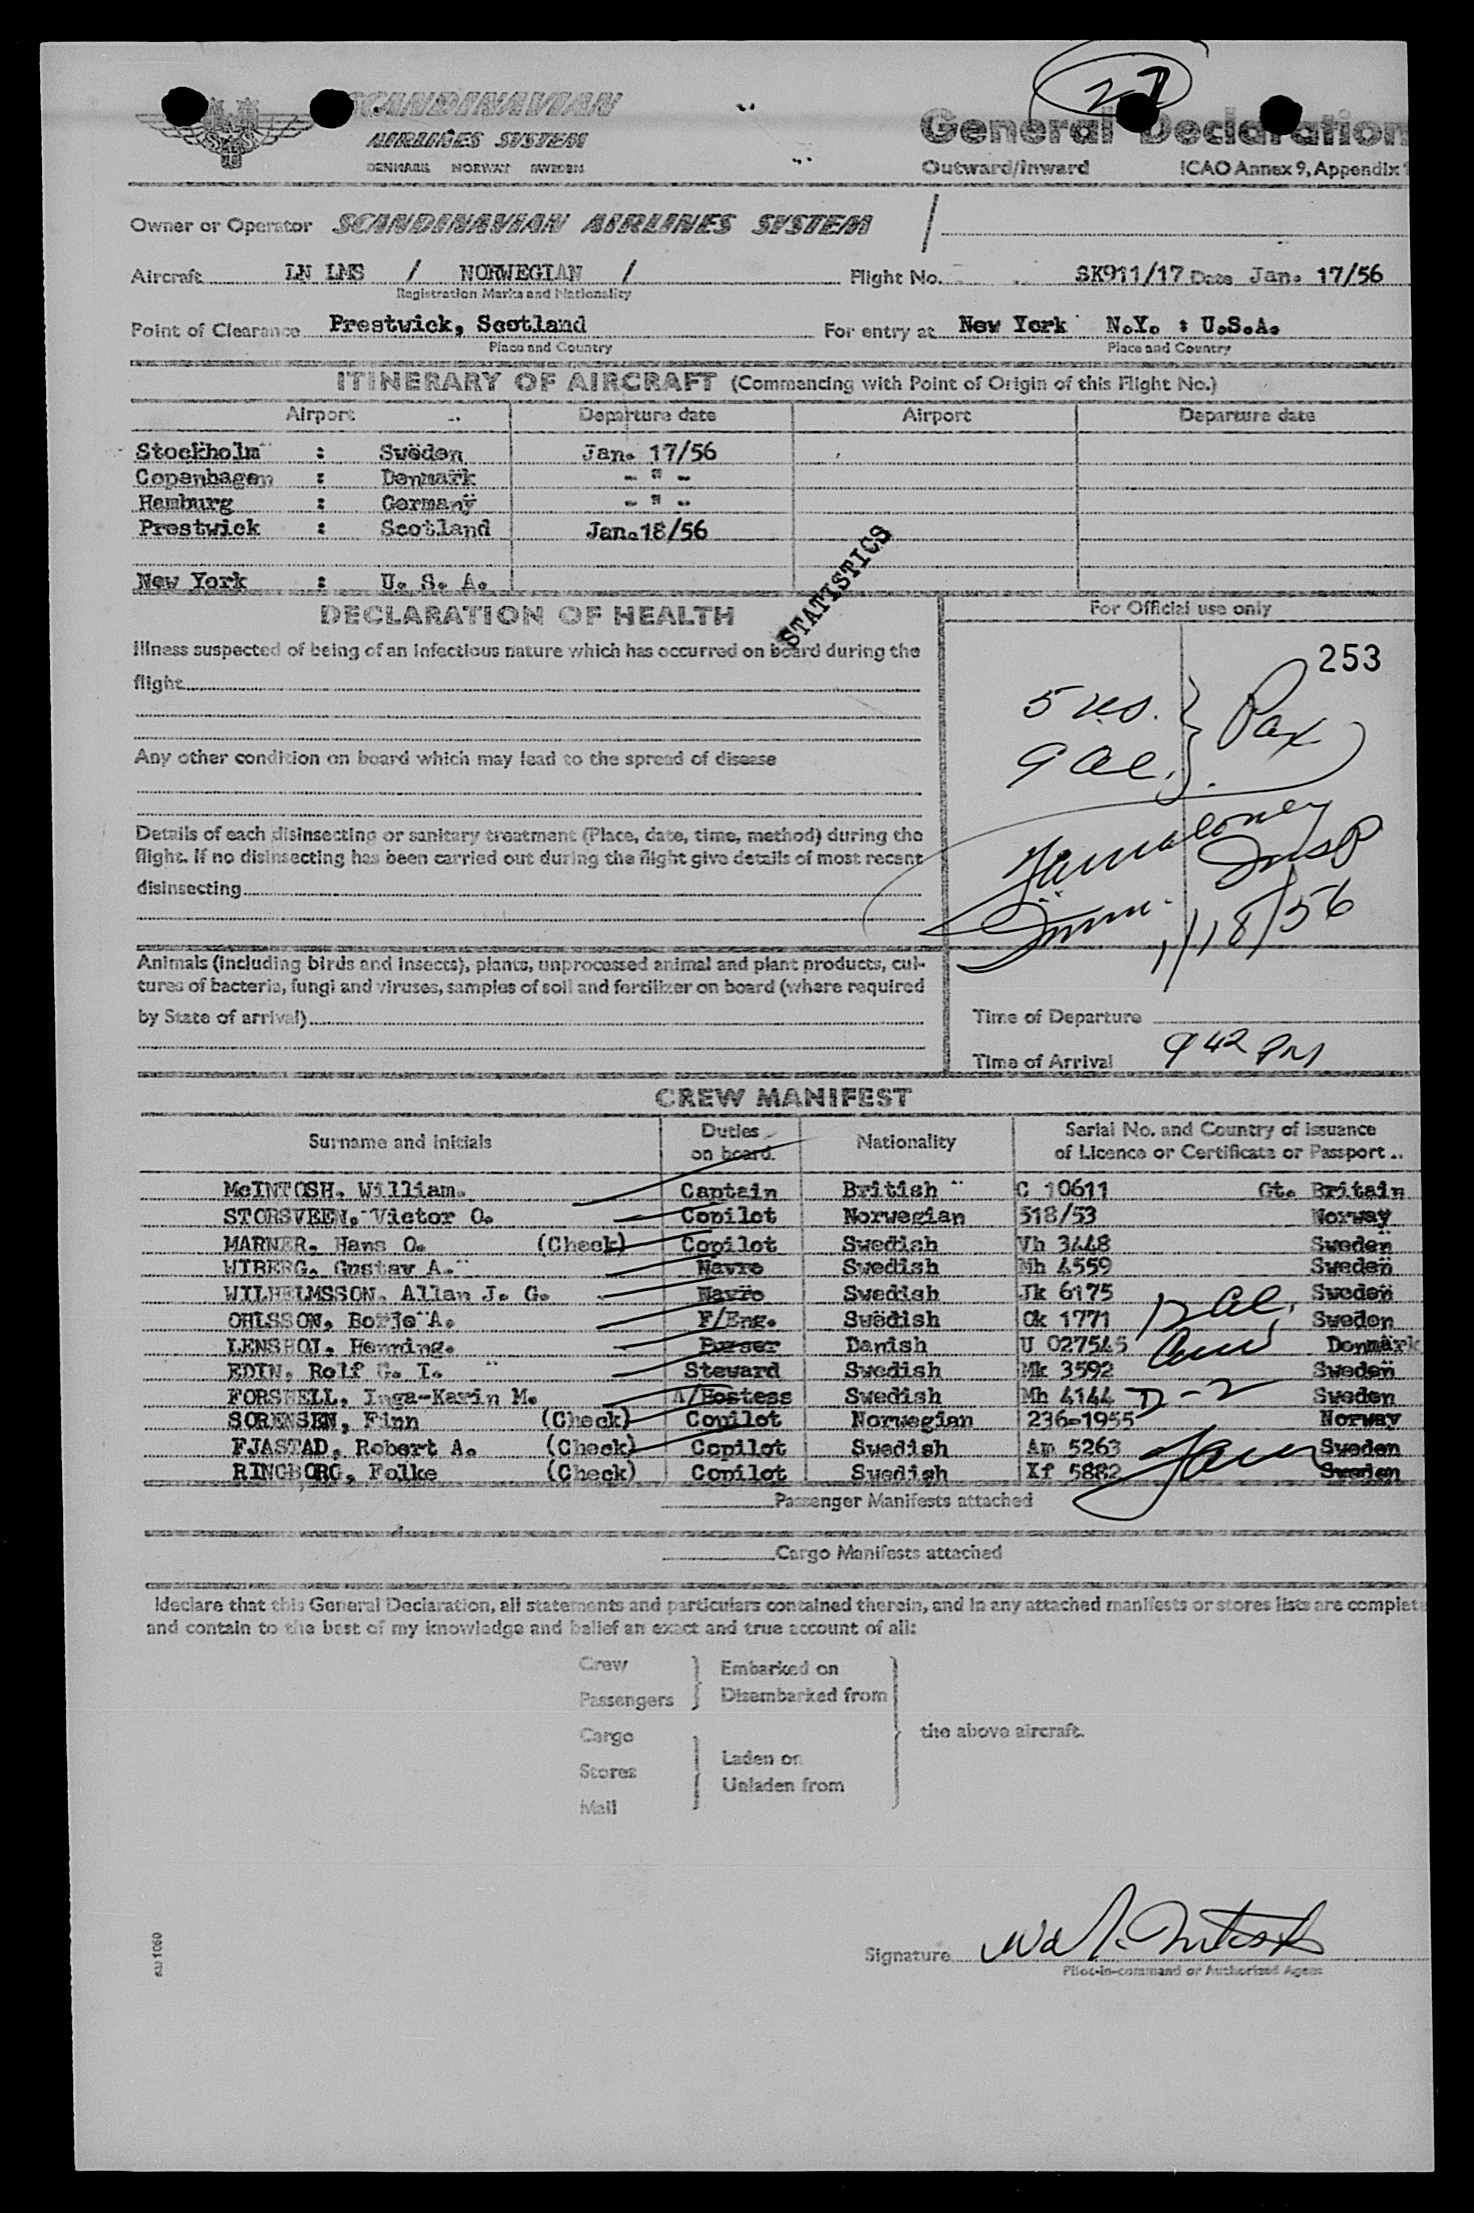 27
SCANDINAVIAN
AIRLINES SYSTEM
DENMARK NORWAY SWEDEN
General Declaration
Outward/Inward ICAO Annex 9, Appendix 1
Owner or Operator SCANDINAVIAN AIRLINES SYSTEM /
Aircraft LN LMS / NORWEGIAN / Flight No. SK911/17 Date Jan. 17/56
Registration Marks and Nationality
Point of Clearance Prestwick, Scotland For entry at New York N.Y. : U.S.A.
Place and Country Place and Country
ITINERARY OF AIRCRAFT (Commencing with Point of Origin of this Flight No.)
Airport Departure date Airport Departure date
Stockholm : Sweden Jan. 17/56
Copenhagen : Denmark - " -
Hamburg : Germany - " -
Prestwick : Scotland Jan.18/56
New York : U. S. A.
STATISTICS
DECLARATION OF HEALTH
Illness suspected of being of an infectious nature which has occurred on board during the
flight
Any other condition on board which may lead to the spread of disease
Details of each disinsecting or sanitary treatment (Place, date, time, method) during the
flight. If no disinsecting has been carried out during the flight give details of most recent
disinsecting
Animals (including birds and insects), plants, unprocessed animal and plant products, cul-
tures of bacteria, fungi and viruses, samples of soil and fertilizer on board (where required
by State of arrival)
For Official use only
253
5 us. } Pax
9 al. }
Insp
Imm. 1/18/56
Time of Departure
Time of Arrival 9 42 PM
CREW MANIFEST
Surname and initials Duties on board. Nationality Serial No. and Country of issuance of Licence or Certificate or Passport
McINTOSH. William. Captain British C 10611 Gt. Britain
STORSVEEN. Victor O. Copilot Norwegian 518/53 Norway
MARNER. Hans O. (Check) Copilot Swedish Vh 3448 Sweden
WIBERG. Gustav A. Navro Swedish Mh 4559 Sweden
WILHELMSSON. Allan J. G. Navro Swedish Jk 6175 Sweden
OHLSSON. Borje A. F/Eng. Swedish Ok 1771 Sweden
LENSHOJ. Henning. Purser Danish U 027545 Denmark
EDIN. Rolf G. I. Steward Swedish Mk 3592 Sweden
FORSHELL. Inga-Karin M. A/Hostess Swedish Mh 4144 Sweden
SORENSEN, Finn (Check) Copilot Norwegian 236-1955 Norway
FJASTAD. Robert A. (Check) Copilot Swedish Am 5263 Sweden
RINGBORG. Folke (Check) Copilot Swedish Xf 5882 Sweden
12 al.
D-2
Passenger Manifests attached
Cargo Manifests attached
I declare that this General Declaration, all statements and particulars contained therein, and in any attached manifests or stores lists are complete
and contain to the best of my knowledge and belief an exact and true account of all:
Crew
Passengers } Embarked on
Disembarked from
Cargo
Stores
Mail } Laden on
Unladen from
} the above aircraft.
Signature
Pilot-in-command or Authorized Agent